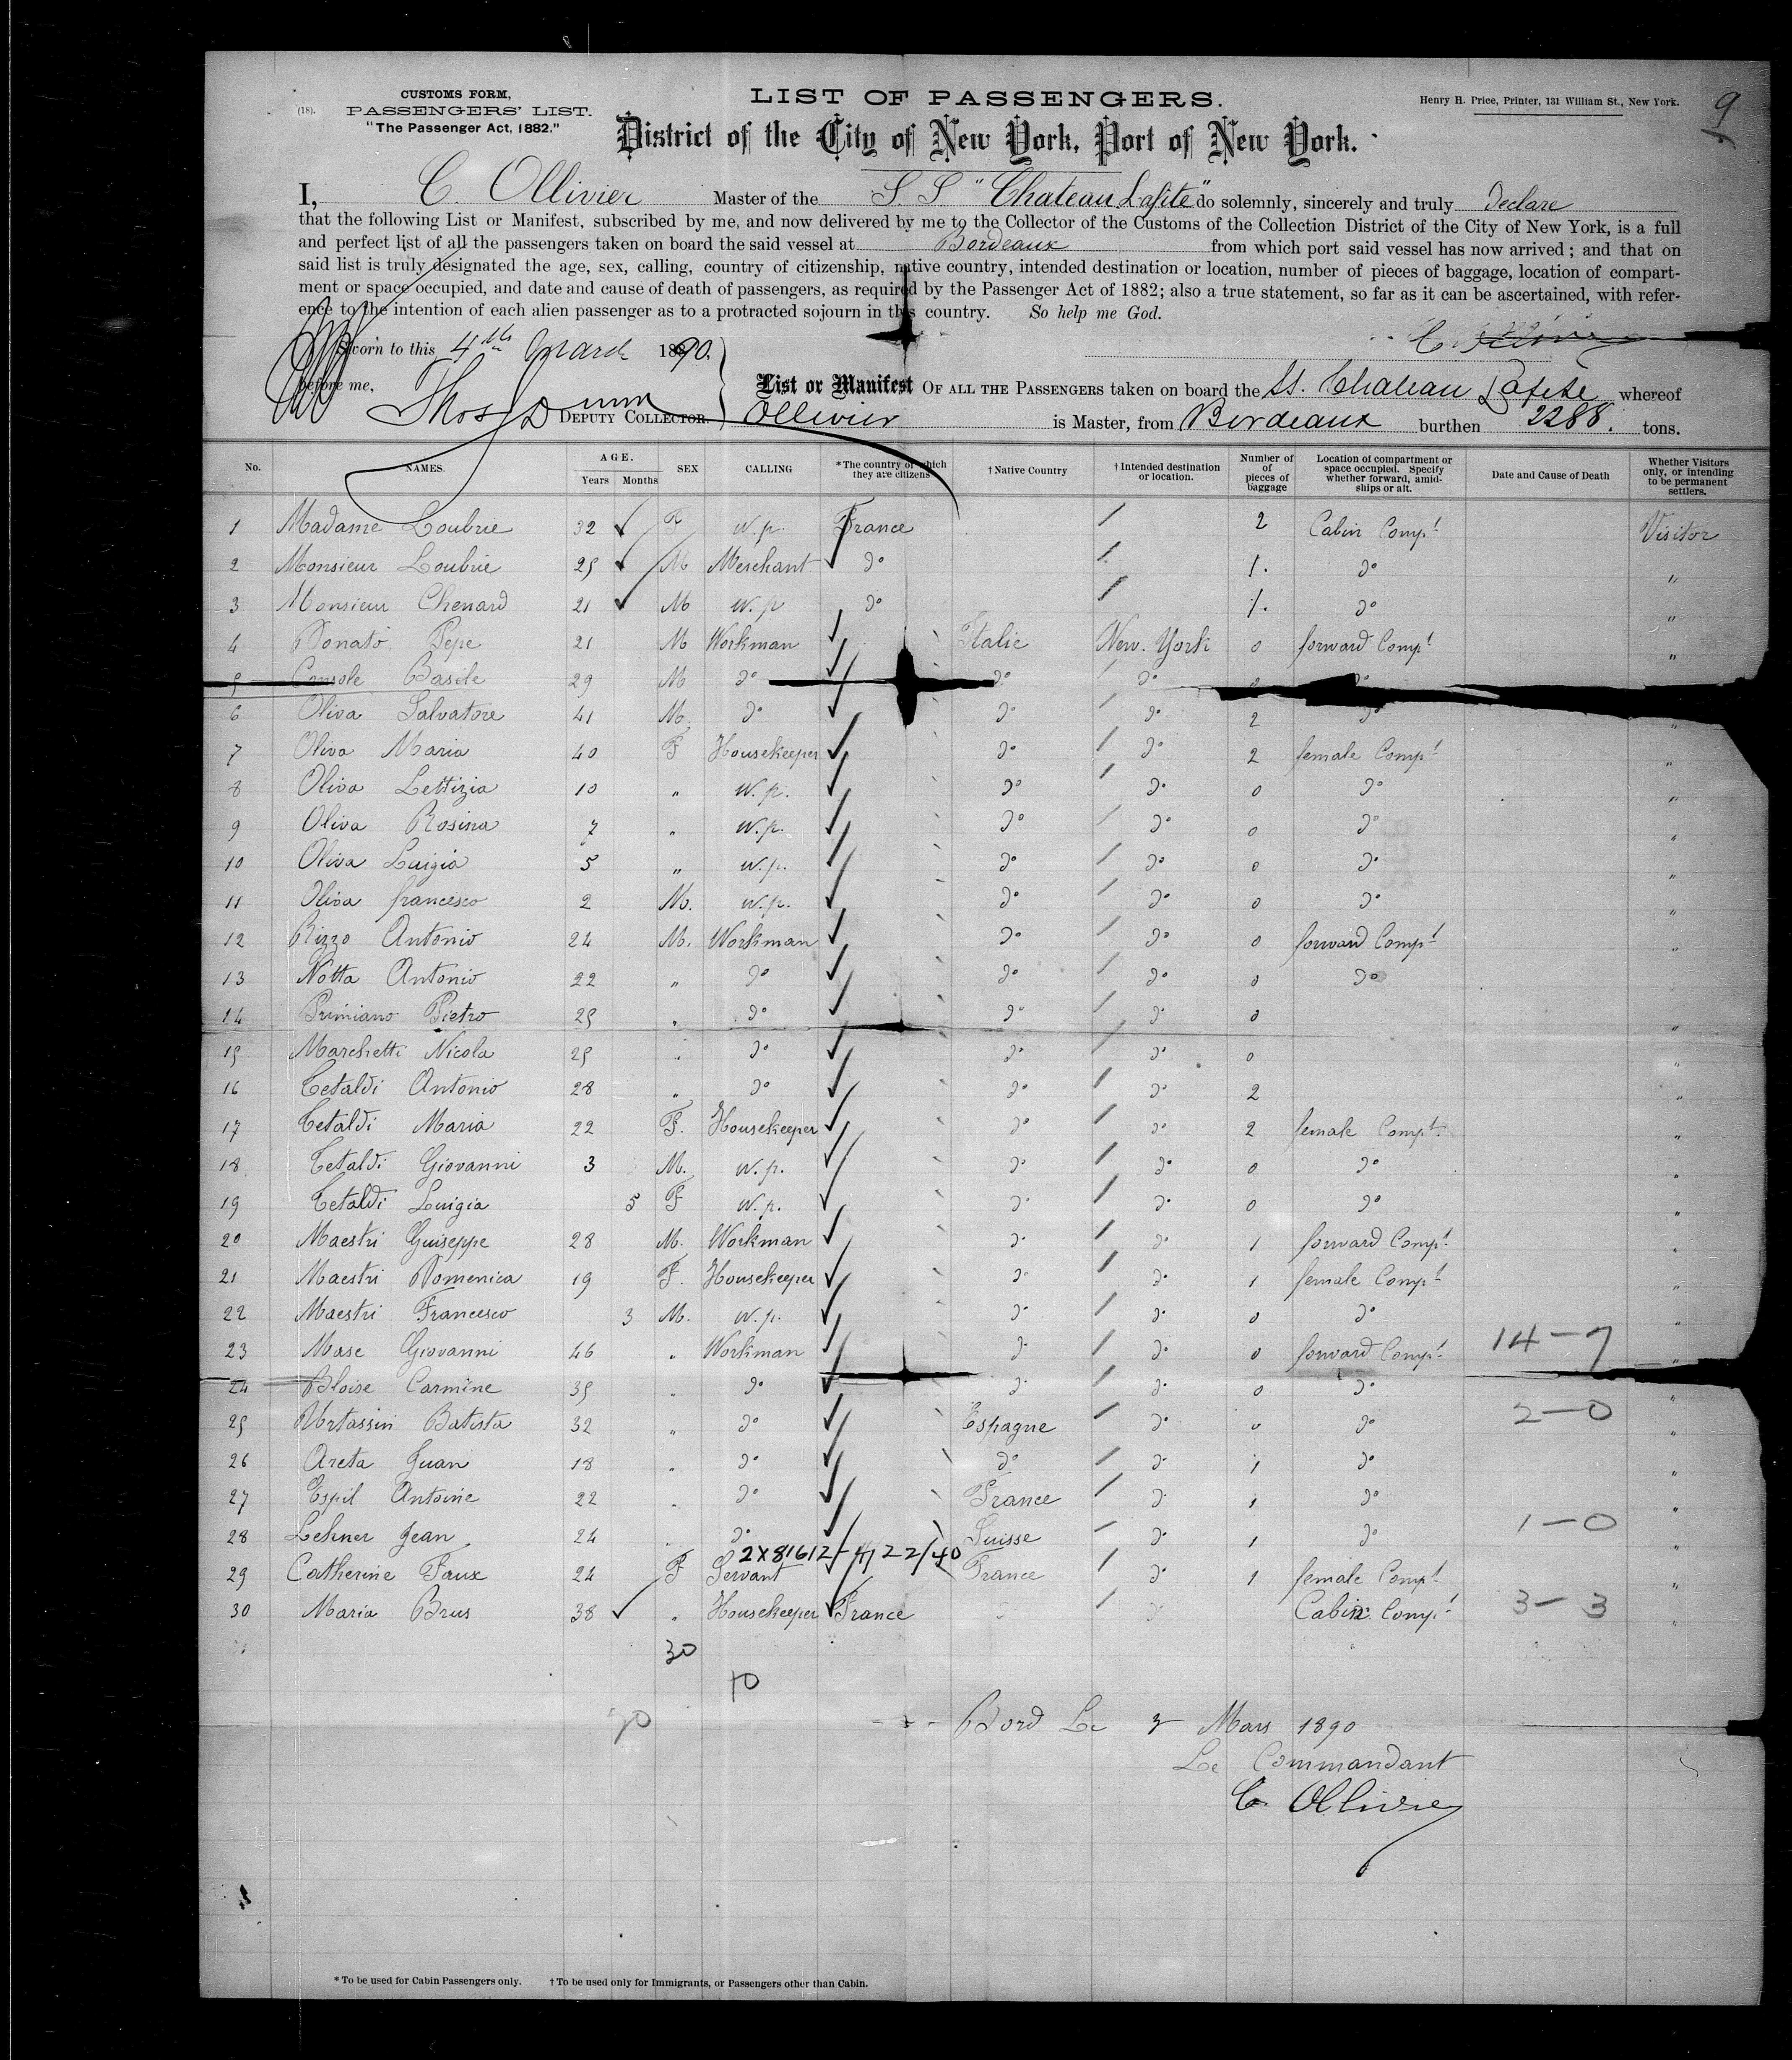 9
CUSTOMS FORM,
(18). PASSENGERS' LIST.
"The Passenger Act, 1882."
LIST OF PASSENGERS.
Henry H. Price, Printer, 131 William St., New York.
District of the City of New York, Port of New York.
I, C. Ollivier Master of the S. S. "Chateau Lafite" do solemnly, sincerely and truly Declare
that the following List or Manifest, subscribed by me, and now delivered by me to the Collector of the Customs of the Collection District of the City of New York, is a full
and perfect list of all the passengers taken on board the said vessel at Bordeaux from which port said vessel has now arrived; and that on
said list is truly designated the age, sex, calling, country of citizenship, native country, intended destination or location, number of pieces of baggage, location of compart-
ment or space occupied, and date and cause of death of passengers, as required by the Passenger Act of 1882; also a true statement, so far as it can be ascertained, with refer-
ence to the intention of each alien passenger as to a protracted sojourn in this country. So help me God.
C Ollivier
Sworn to this 4th March 1890.
before me, Thos Dunn DEPUTY COLLECTOR.
List or Manifest OF ALL THE PASSENGERS taken on board the SS. Chateau Lafite whereof
Ollivier is Master, from Bordeaux burthen 2288. tons.
No. NAMES. AGE. Years Months SEX CALLING *The country of which they are citizens †Native Country †Intended destination or location. Number of of pieces of baggage Location of compartment or space occupied. Specify whether forward, amid-ships or aft. Date and Cause of Death Whether Visitors only, or intending to be permanent settlers.
1 Madame Loubrie 32 F w.p. France 2 Cabin Compt Visitor
2 Monsieur Loubrie 25 M Merchant do 1. do "
3 Monsieur Chenard 21 M w.p do 1. do "
4 Donato Pepe 21 M Workman Italie New. York 0 forward Compt "
5 Console Basile 29 M do do do 0 do
6 Oliva Salvatore 41 M. do do do 2 do "
7 Oliva Maria 40 F Housekeeper do do 2 female Compt "
8 Oliva Lettizia 10 " w.p. do do 0 do "
9 Oliva Rosina 7 " w.p. do do 0 do "
10 Oliva Luigia 5 " w.p. do do 0 do "
11 Oliva francesco 2 M. w.p. do do 0 do "
12 Rizzo Antonio 24 M. Workman do do 0 forward Compt "
13 Notta Antonio 22 " do do do 0 do
14 Primiano Pietro 25 " do do do 0 "
15 Marchetti Nicola 25 " do do do 0 "
16 Cetaldi Antonio 28 " do do do 2 "
17 Cetaldi Maria 22 F. Housekeeper do do 2 female Compt "
18 Cetaldi Giovanni 3 M. w.p. do do 0 do "
19 Cetaldi Luigia 5 F w.p. do do 0 do "
20 Maestri Guiseppe 28 M. Workman do do 1 forward Compt "
21 Maestri Domenica 19 F. Housekeeper do do 1 female Compt "
22 Maestri Francesco 3 M. w.p. do do 0 do "
23 Mase Giovanni 46 " Workman do do 0 forward Compt 14-7 "
24 Bloise Carmine 35 " do do do 0 do "
25 Urtassin Batista 32 " do Espagne do 0 do 2-0 "
26 Areta Juan 18 " do do do 1 do "
27 Espil Antoine 22 " do France do 1 do "
28 Lehner Jean 24 " do Suisse do 1 do 1-0 "
29 Catherine Faux 24 F Servant France do 1 female Compt "
30 Maria Brus 38 " Housekeeper France Cabin Compt 3-3 "
30
10
Bord Le 3 Mars 1890
Le Commandant
C. Ollivier
*To be used for Cabin Passengers only. †To be used only for Immigrants, or Passengers other than Cabin.